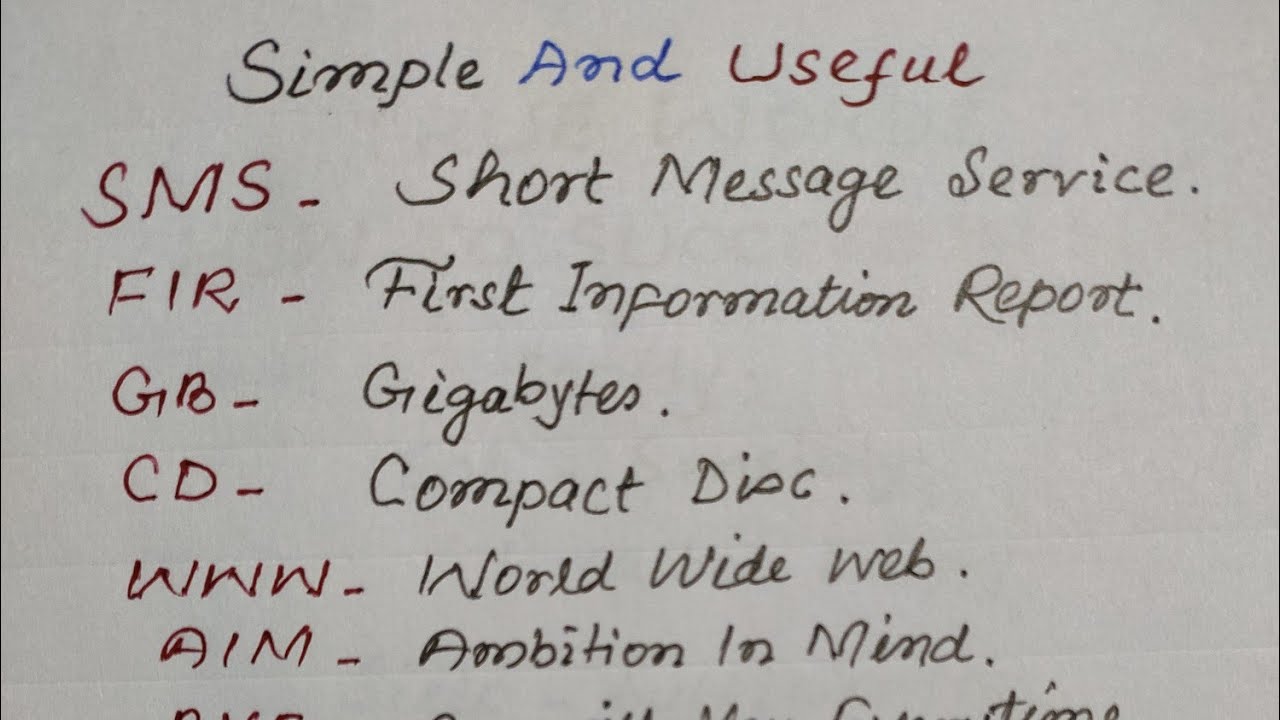 Simple And Useful
SMS - Short Message Service.
FIR - First Information Report.
GB - Gigabytes.
CD - Compact Disc.
WWW - World Wide Web.
AIM - Ambition In Mind.